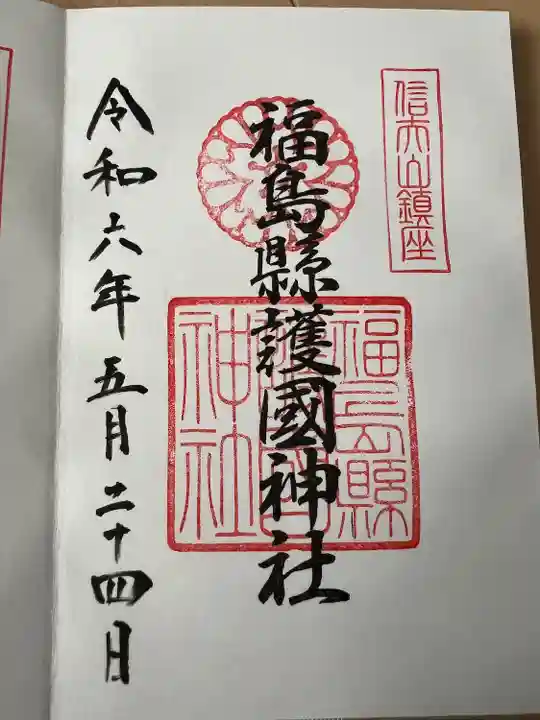 信夫山鎮座
福島縣護國神社
福島縣護國神社
令和六年五月二十四日